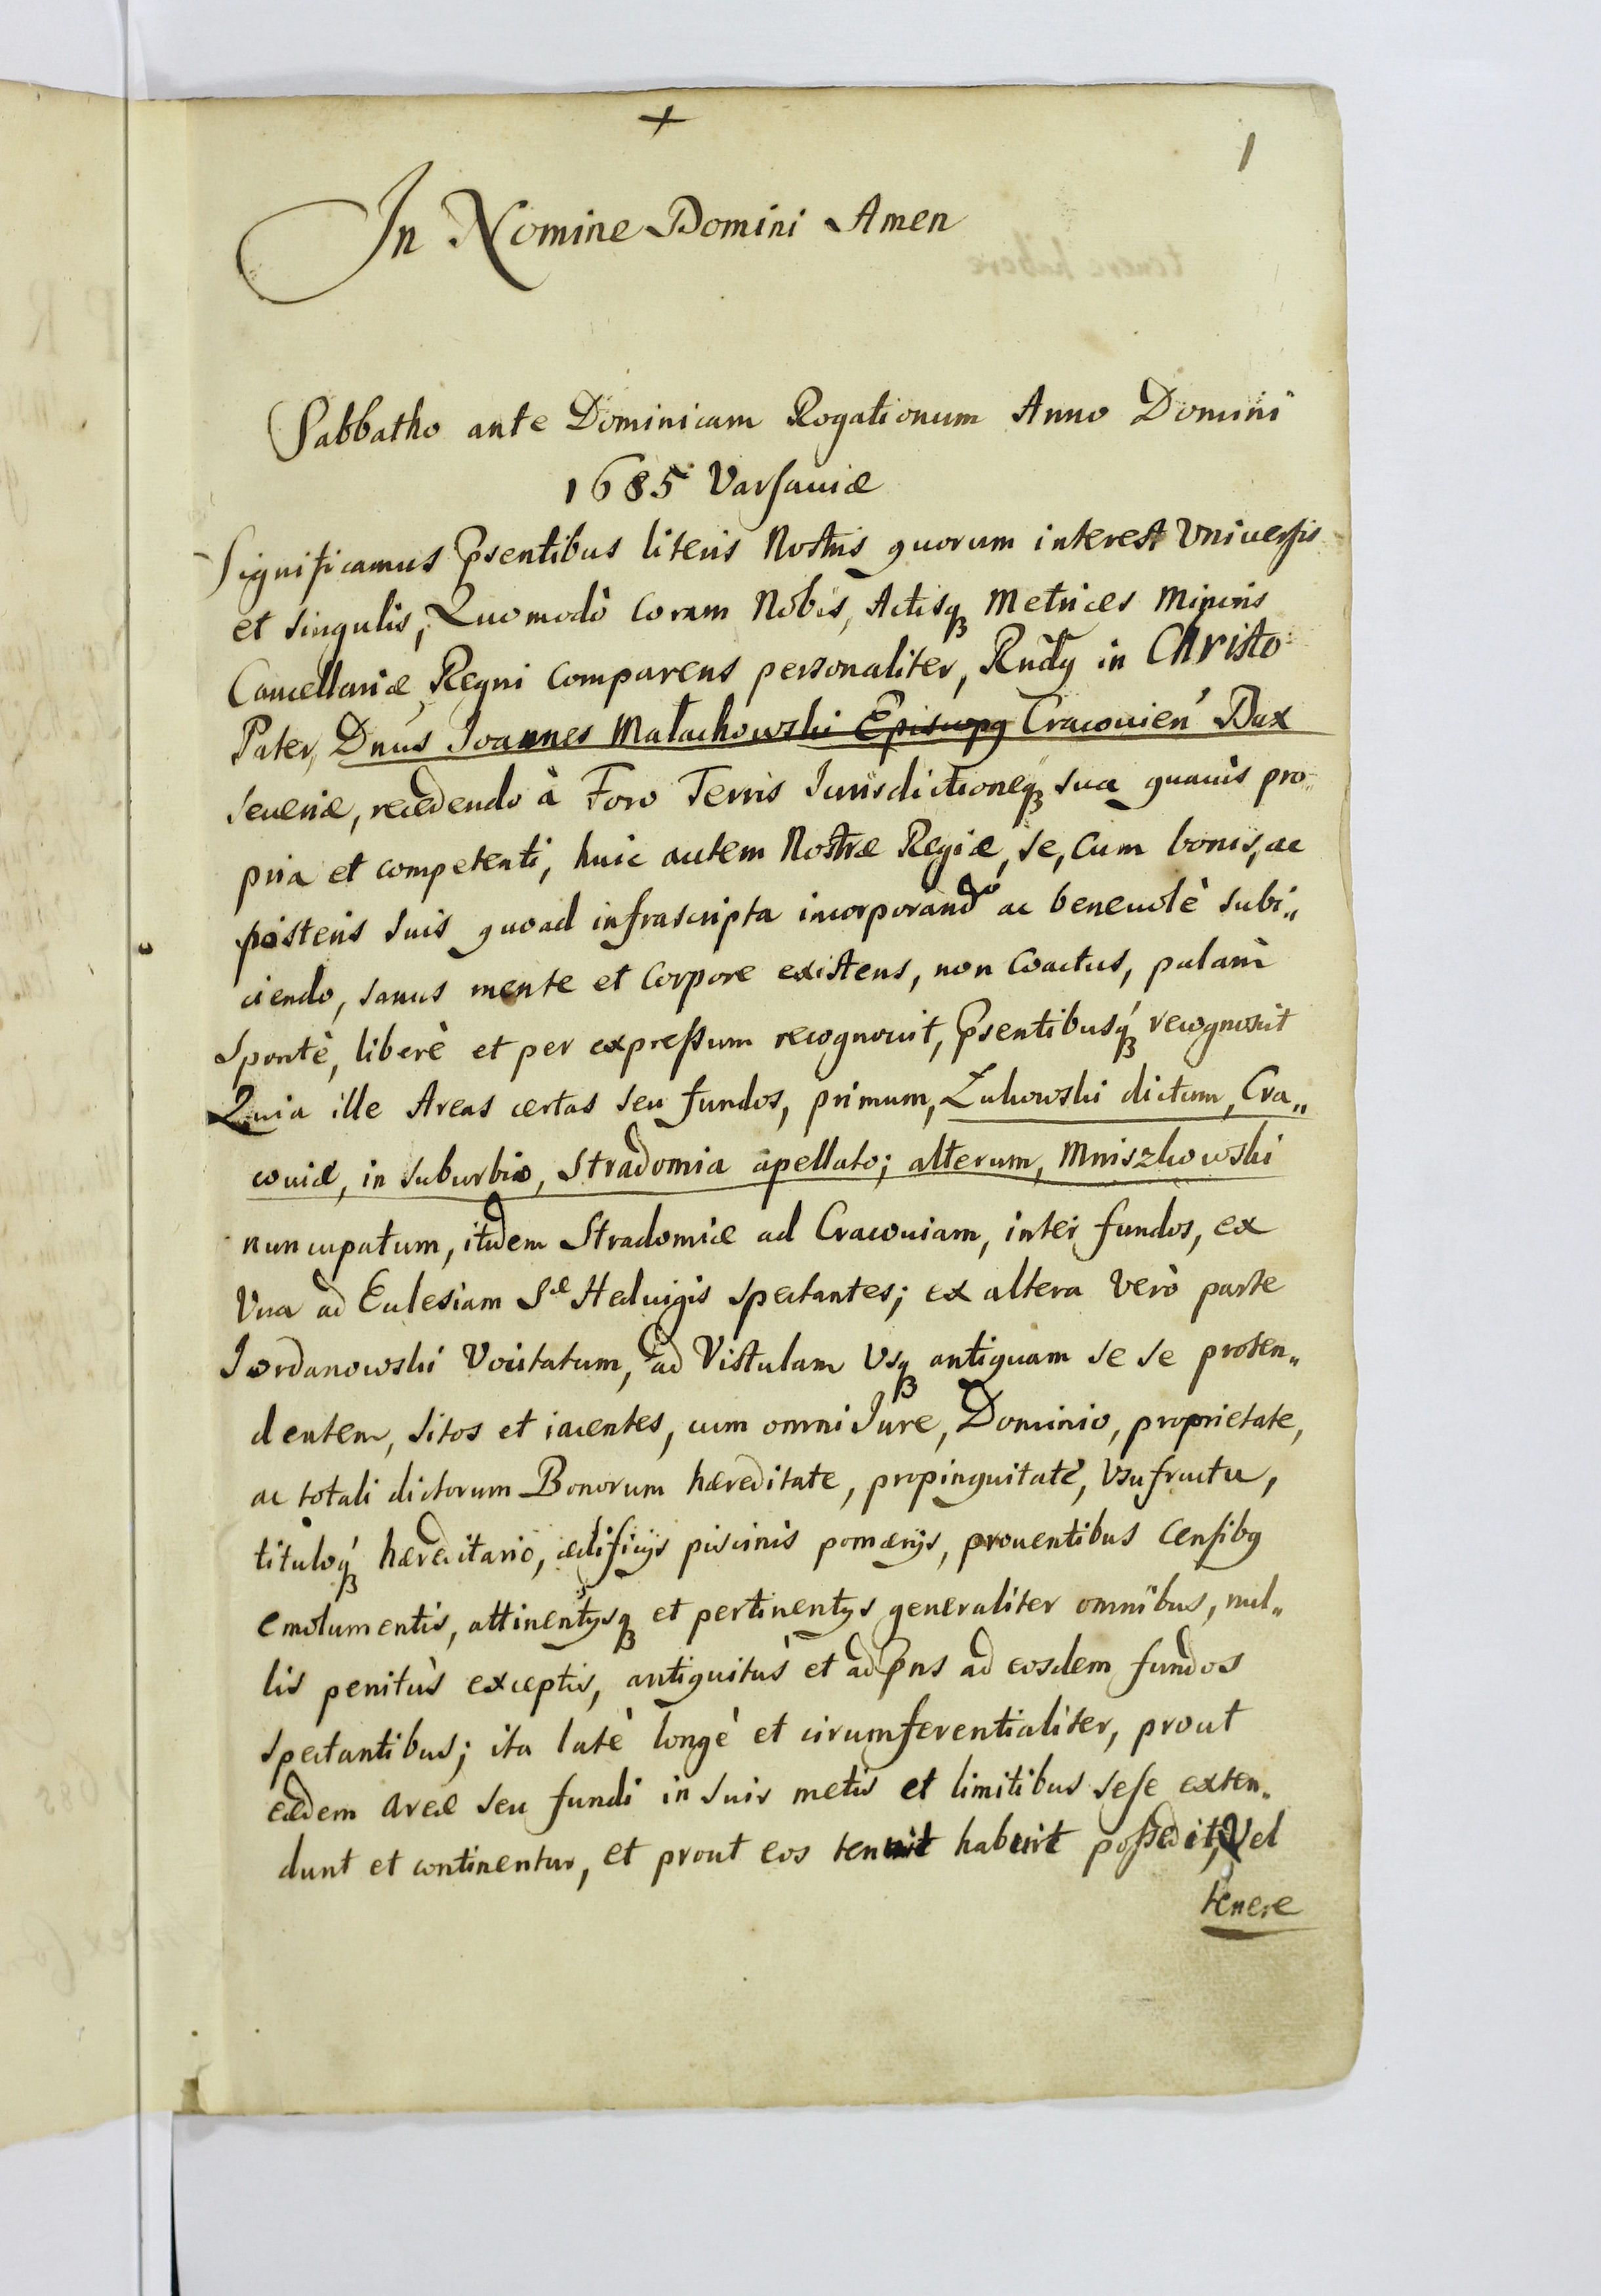 +
1
In Nomine Domini Amen
Sabbatho ante Dominicam Rogationum Anno Domini
1685 Varsauiæ
Significamus Psentibus literis Nostris quorum interest Vniuersis
et singulis, Quomodò Coram Nobis, Actisq Metrices Minoris
Cancellariæ Regni Comparens personaliter, Rndg in Christo
Pater, Dnus Ioannes Małachowski Episcopg Cracouien Dux
Seueriæ, recedendo à Foro Terris Iurisdictioneq sua quauis pro„
pria et competenti, huic autem Nostræ Regiæ, se, Cum bonis, ac
posteris suis quoad infrascripta incorporando ac beneuolè subi„
ciendo, sanus mente et Corpore existens, non Coactus, palàm
Spontè, liberè et per expressum recognouit, Psentibusq recognoscit
Quia ille Areas certas seu fundos, primum, Zukowski dictum, Cra„
couiæ, in suburbio, Stradomia apellato; alterum, Mniszkowski
nuncupatum, itidem Stradomiæ ad Cracouiam, inter fundos, ex
Vna ad Eclesiam Sæ Heduigis spectantes; ex altera Verò parte
Iordanowski Vocitatum, ad Vistulam Vsq antiquam se se proten„
dentem, sitos et iacentes, cum omni Iure, Dominio, proprietate,
ac totali dictorum Bonorum hæreditate, propinquitate, Vsufructu,
tituloq hæreditario, ædificijs piscinis pomærijs, prouentibus Censibg
emolumentis, attinentijsq et pertinentijs generaliter omnibus, nul„
lis penitùs exceptis, antiquitùs et ad Pns ad eosdem fundos
spectantibus; ita latè longè et circumferentialiter, prout
eædem Areæ seu fundi in suis metis et limitibus sese exten„
dunt et continentur, et prout eos tenuit habuit possedit, Vel
tenere